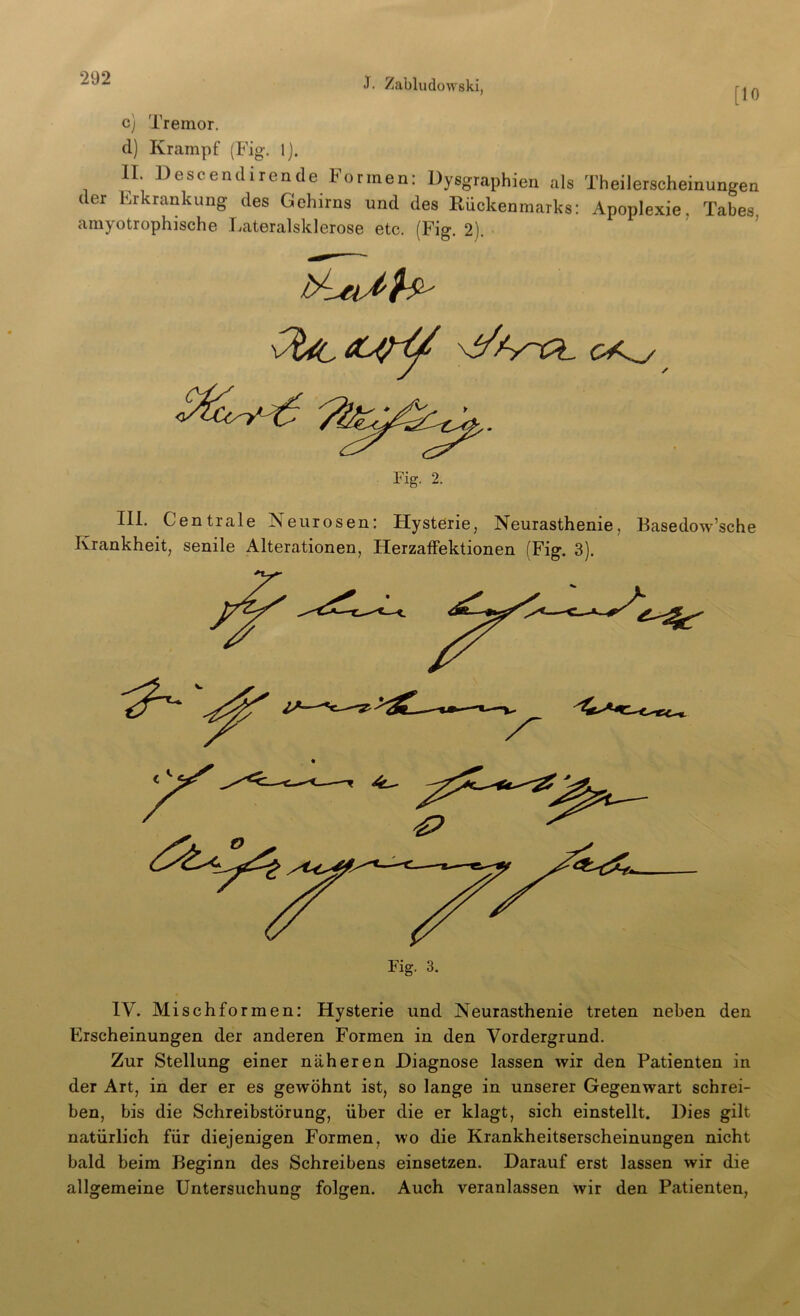 292
J. Zabludowski,
[10
c) Tremor.
d) Krampf (Fig. 1).
II. Descendirende Formen: Dysgraphien als Theilerscheinungen
der Erkrankung des Gehirns und des Rückenmarks: Apoplexie, Tabes,
amyotrophische Lateralsklerose etc. (Fig. 2).
Fig. 2.
III. Centrale Neurosen: Hysterie, Neurasthenie, Basedow’sche
Krankheit, senile Alterationen, Herzaffektionen (Fig. 3).
Fig. 3.
IV. Mischformen: Hysterie und Neurasthenie treten neben den
Erscheinungen der anderen Formen in den Vordergrund.
Zur Stellung einer näheren Diagnose lassen wir den Patienten in
der Art, in der er es gewöhnt ist, so lange in unserer Gegenwart schrei-
ben, bis die Schreibstörung, über die er klagt, sich einstellt. Dies gilt
natürlich für diejenigen Formen, wo die Krankheitserscheinungen nicht
bald beim Beginn des Schreibens einsetzen. Darauf erst lassen wir die
allgemeine Untersuchung folgen. Auch veranlassen wir den Patienten,